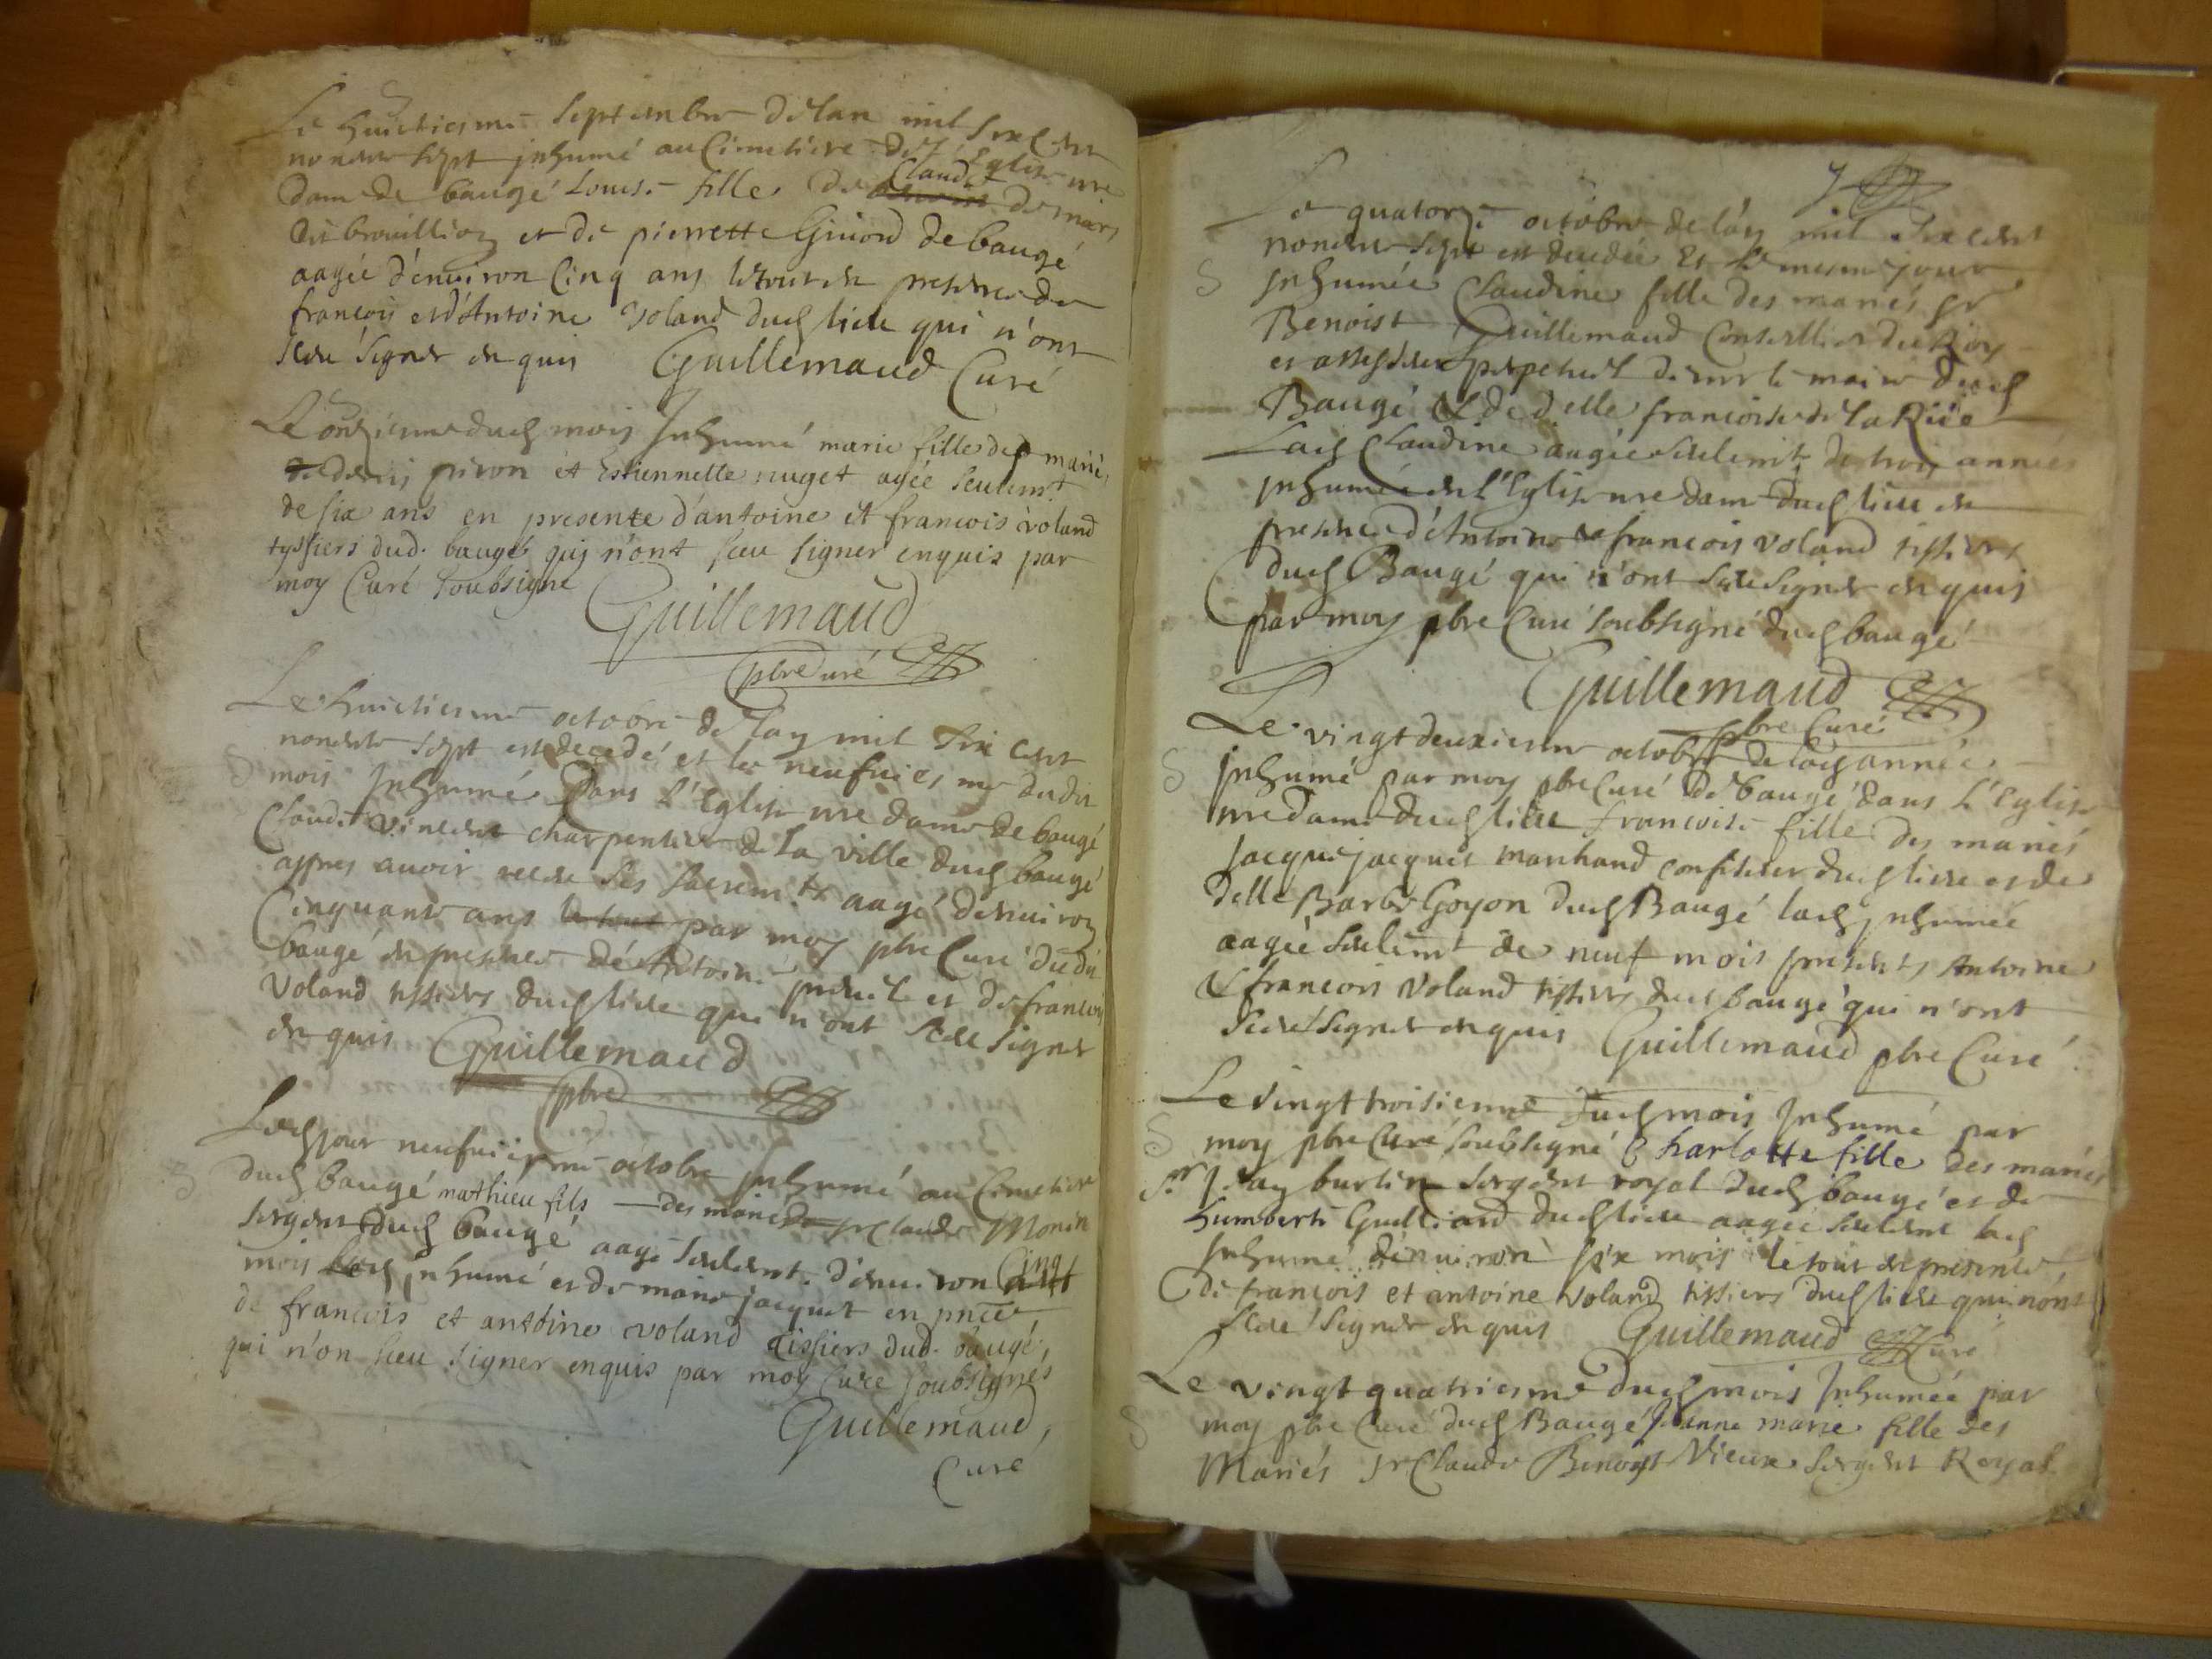 Le huictiesme septembre de lan mil six cent
nonente sept inhumé au Cimetiere de l'Eglise nre
Claude
dame de baugé Louise fille de de mars
dit brouillion et de pierrette Girord de baugé
aagée d'environ Cinq ans le tout en presence de
francois et d'Antoine Voland dud lieu qui n'ont
sceu signer enquis Guillemaud Curé
Le onziesme dud mois Inhumé marie fille des mariés
denis piron et Estiennette nuget agée seulemt
de six ans en presence d'antoine et francois voland
tyssiers dud. baugé qui n'ont sceu signer enquis par
moy Curé soubsigne
Guillemaud
pbre Curé
Le huictiesme octobre de lan mil six cent
nonente sept est decedé et le neufuiesme dudit
mois Inhumé Dans l'Eglise nre dame de baugé
Claude vincent charpentier de la ville dud baugé
appres auoir receu ses sacremts aagé denuiron
Cinquante ans le tout par moy pbre Curé dudit
baugé en presence de Antoine et de francois
Voland tissiers dud lieu qui n'ont sceu signer
enquis Guillemaud
pbre
Led jour neufuiesme octobre Inhumé au Cimetiere
dud baugé mathieu fils des mariés sr Claude Monin
Cinq
sergent dud baugé aagé seulemt d'enuiron
mois led inhumé et de marie jacquet en pnce
de francois et antoine voland tissiers dud. baugé,
qui n'on sceu signer enquis par moy Curé soubsignés
Guillemaud,
Curé
7
Le quatorze octobre de lan mil six cent
nonente sept est decedée Et le mesme jour
Inhumée Claudine fille des mariés sr
Benoist Guillemaud Conseillier du Roy
et assesseur perpetuel de mr le maire dud
Baugé & de delle francoise de la Rüe
Lad Claudine aagée seulemt de trois années
inhumée en l'Eglise nre dame dud lieu en
presence d'Antoine & francois voland tissiers
dud Baugé qui n'ont sceu signer enquis
par moy pbre Curé soubsigné dud baugé
Guillemaud
pbre Curé
Le vingt deuxiesme octobre de lad année
Inhumé par moy pbre Curé de baugé dans l'Eglise
nre dame dud lieu francoise fille des mariés
jacque jacquet marchand confiseur dud lieu et de
delle Barbe Goyon dud Baugé lad inhumée
aagée seulemt de neuf mois presents Antoine
& francois Voland tissiers dud baugé qui n'ont
sceu signer enquis Guillemaud pbre Curé
Le vingt troisiesme dud mois Inhumé par
moy pbre Curé soubsigné Charlotte fille des mariés
sr Jean burtin sergent royal dud baugé et de
humberte Guilliard dud lieu aagée seulemt lad
Inhumé d'enuiron six mois le tout en presence
de francois et antoine voland tissiers dud lieu qui n'ont
sceu signer enquis Guillemaud Curé
Le vingt quatriesme dud mois Inhumée par
moy pbre Curé dud Baugé Jeanne marie fille des
Mariés sr Claude Benoist Vieux sergent Royal